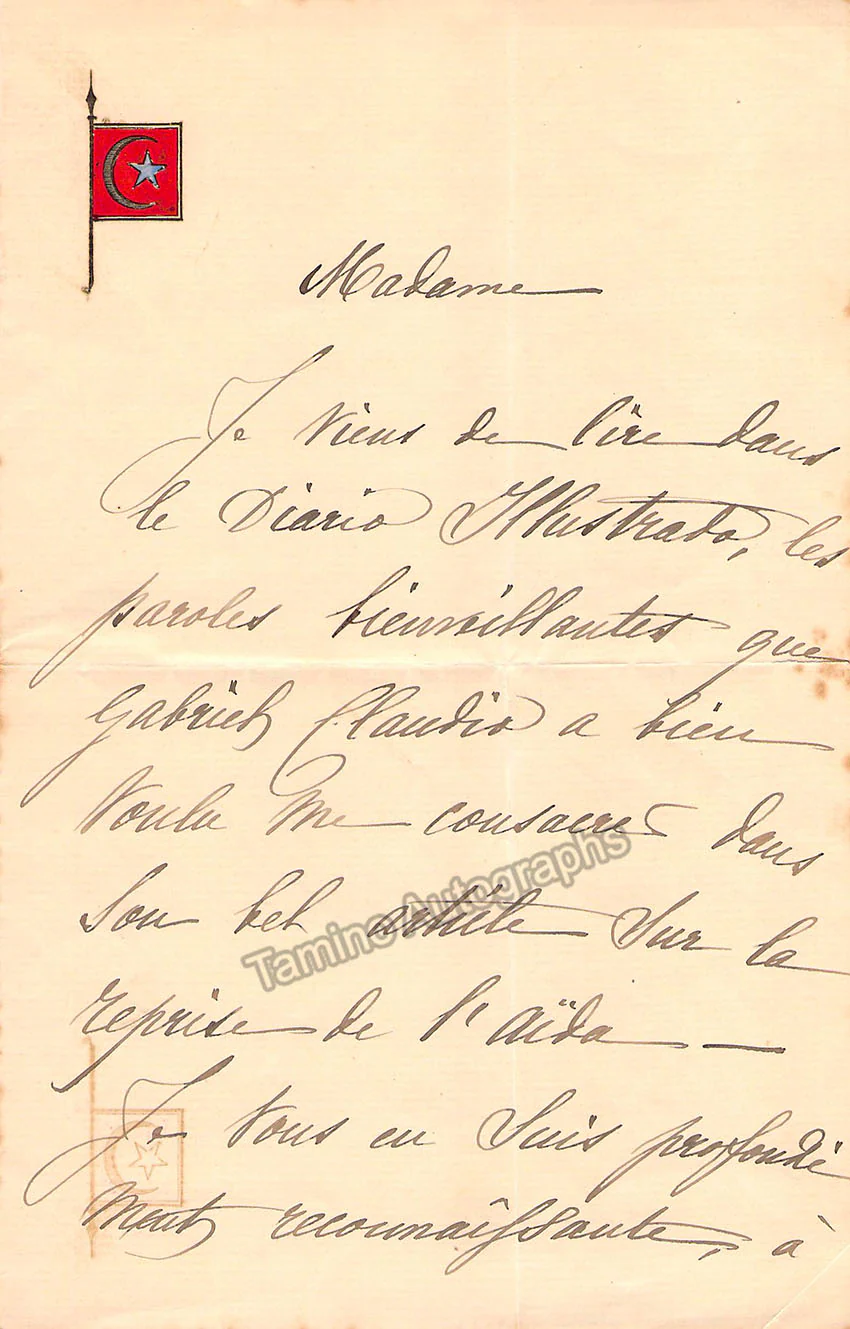 Madame
Je viens de lire dans
le Diario Illustrado, les
paroles bienveillantes que
Gabriel Claudio a bien
voulu me consacrer dans
son bel article sur la
Tamino Autographs
reprise de l'aïda —
Je vous en suis profondé
ment reconnaissante, à